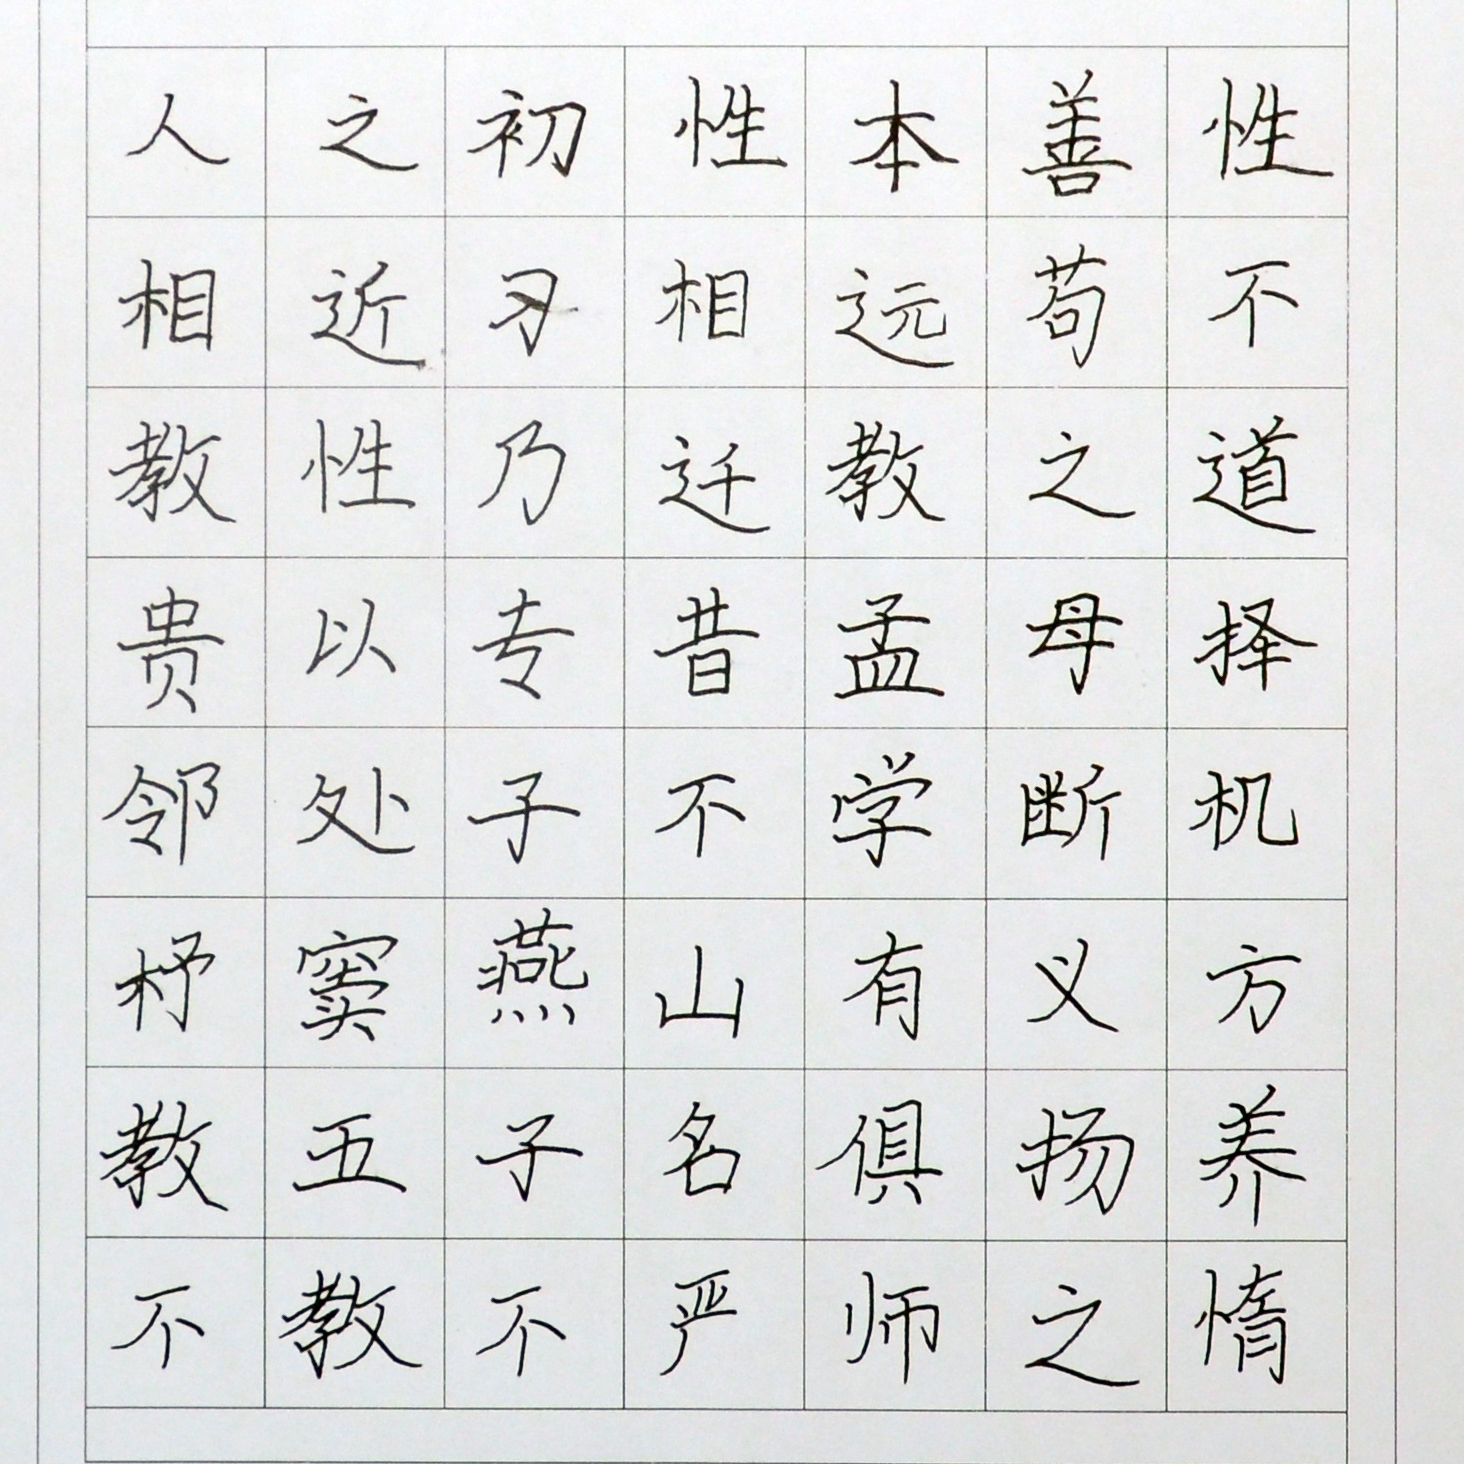 人之初性本善性
相近习相远苟不
教性乃迁教之道
贵以专昔孟母择
邻处子不学断机
杼窦燕山有义方
教五子名俱扬养
不教不严师之惰